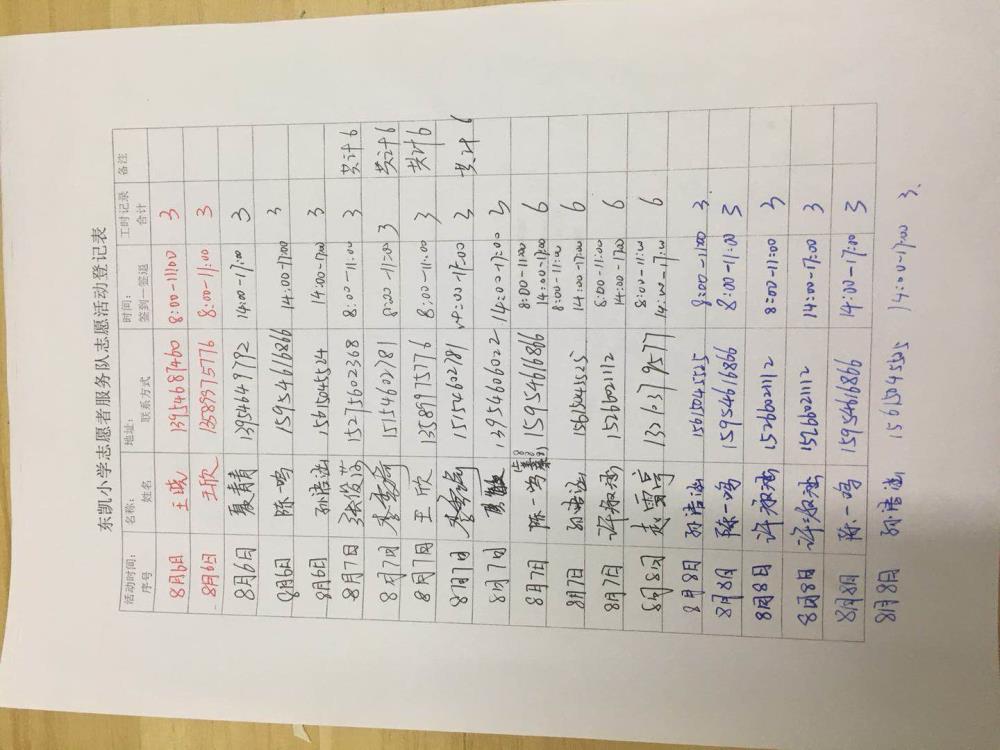 东凯小学志愿者服务队志愿活动登记表
活动时间： 名称： 地址： 时间： 工时记录 备注
序号 姓名 联系方式 签到—签退 合计
8月6日 王晓 13954687460 8:00-11:00 3
8月6日 王欣 13589975776 8:00-11:00 3
8月6日 夏青青 13954649792 14:00-17:00 3
8月6日 陈一鸣 15954616866 14:00-17:00 3
8月6日 孙浩海 15615045524 14:00-17:00 3
8月7日 张俊海 15271602368 8:00-11:00 3 共计6
8月7日 8:00-11:00 3 共计6
8月7日 王欣 13589975776 8:00-11:00 3 共计6
8月7日 14:00-17:00 3 共计6
8月7日 13954606022 14:00-17:00 3
8月7日 陈一鸣 15954616866 8:00-11:00 14:00-17:00 6
8月7日 孙浩海 15615045525 8:00-11:00 14:00-17:00 6
8月7日 许淑涵 15266021112 8:00-11:00 14:00-17:00 6
8月8日 赵雪亭 8:00-11:00 14:00-17:00 6
8月8日 孙浩海 15615045525 8:00-11:00 3
8月8日 陈一鸣 15954616866 8:00-11:00 3
8月8日 许淑涵 15266021112 8:00-11:00 3
8月8日 许淑涵 15266021112 14:00-17:00 3
8月8日 陈一鸣 15954616866 14:00-17:00 3
8月8日 孙浩海 15615045525 14:00-17:00 3.